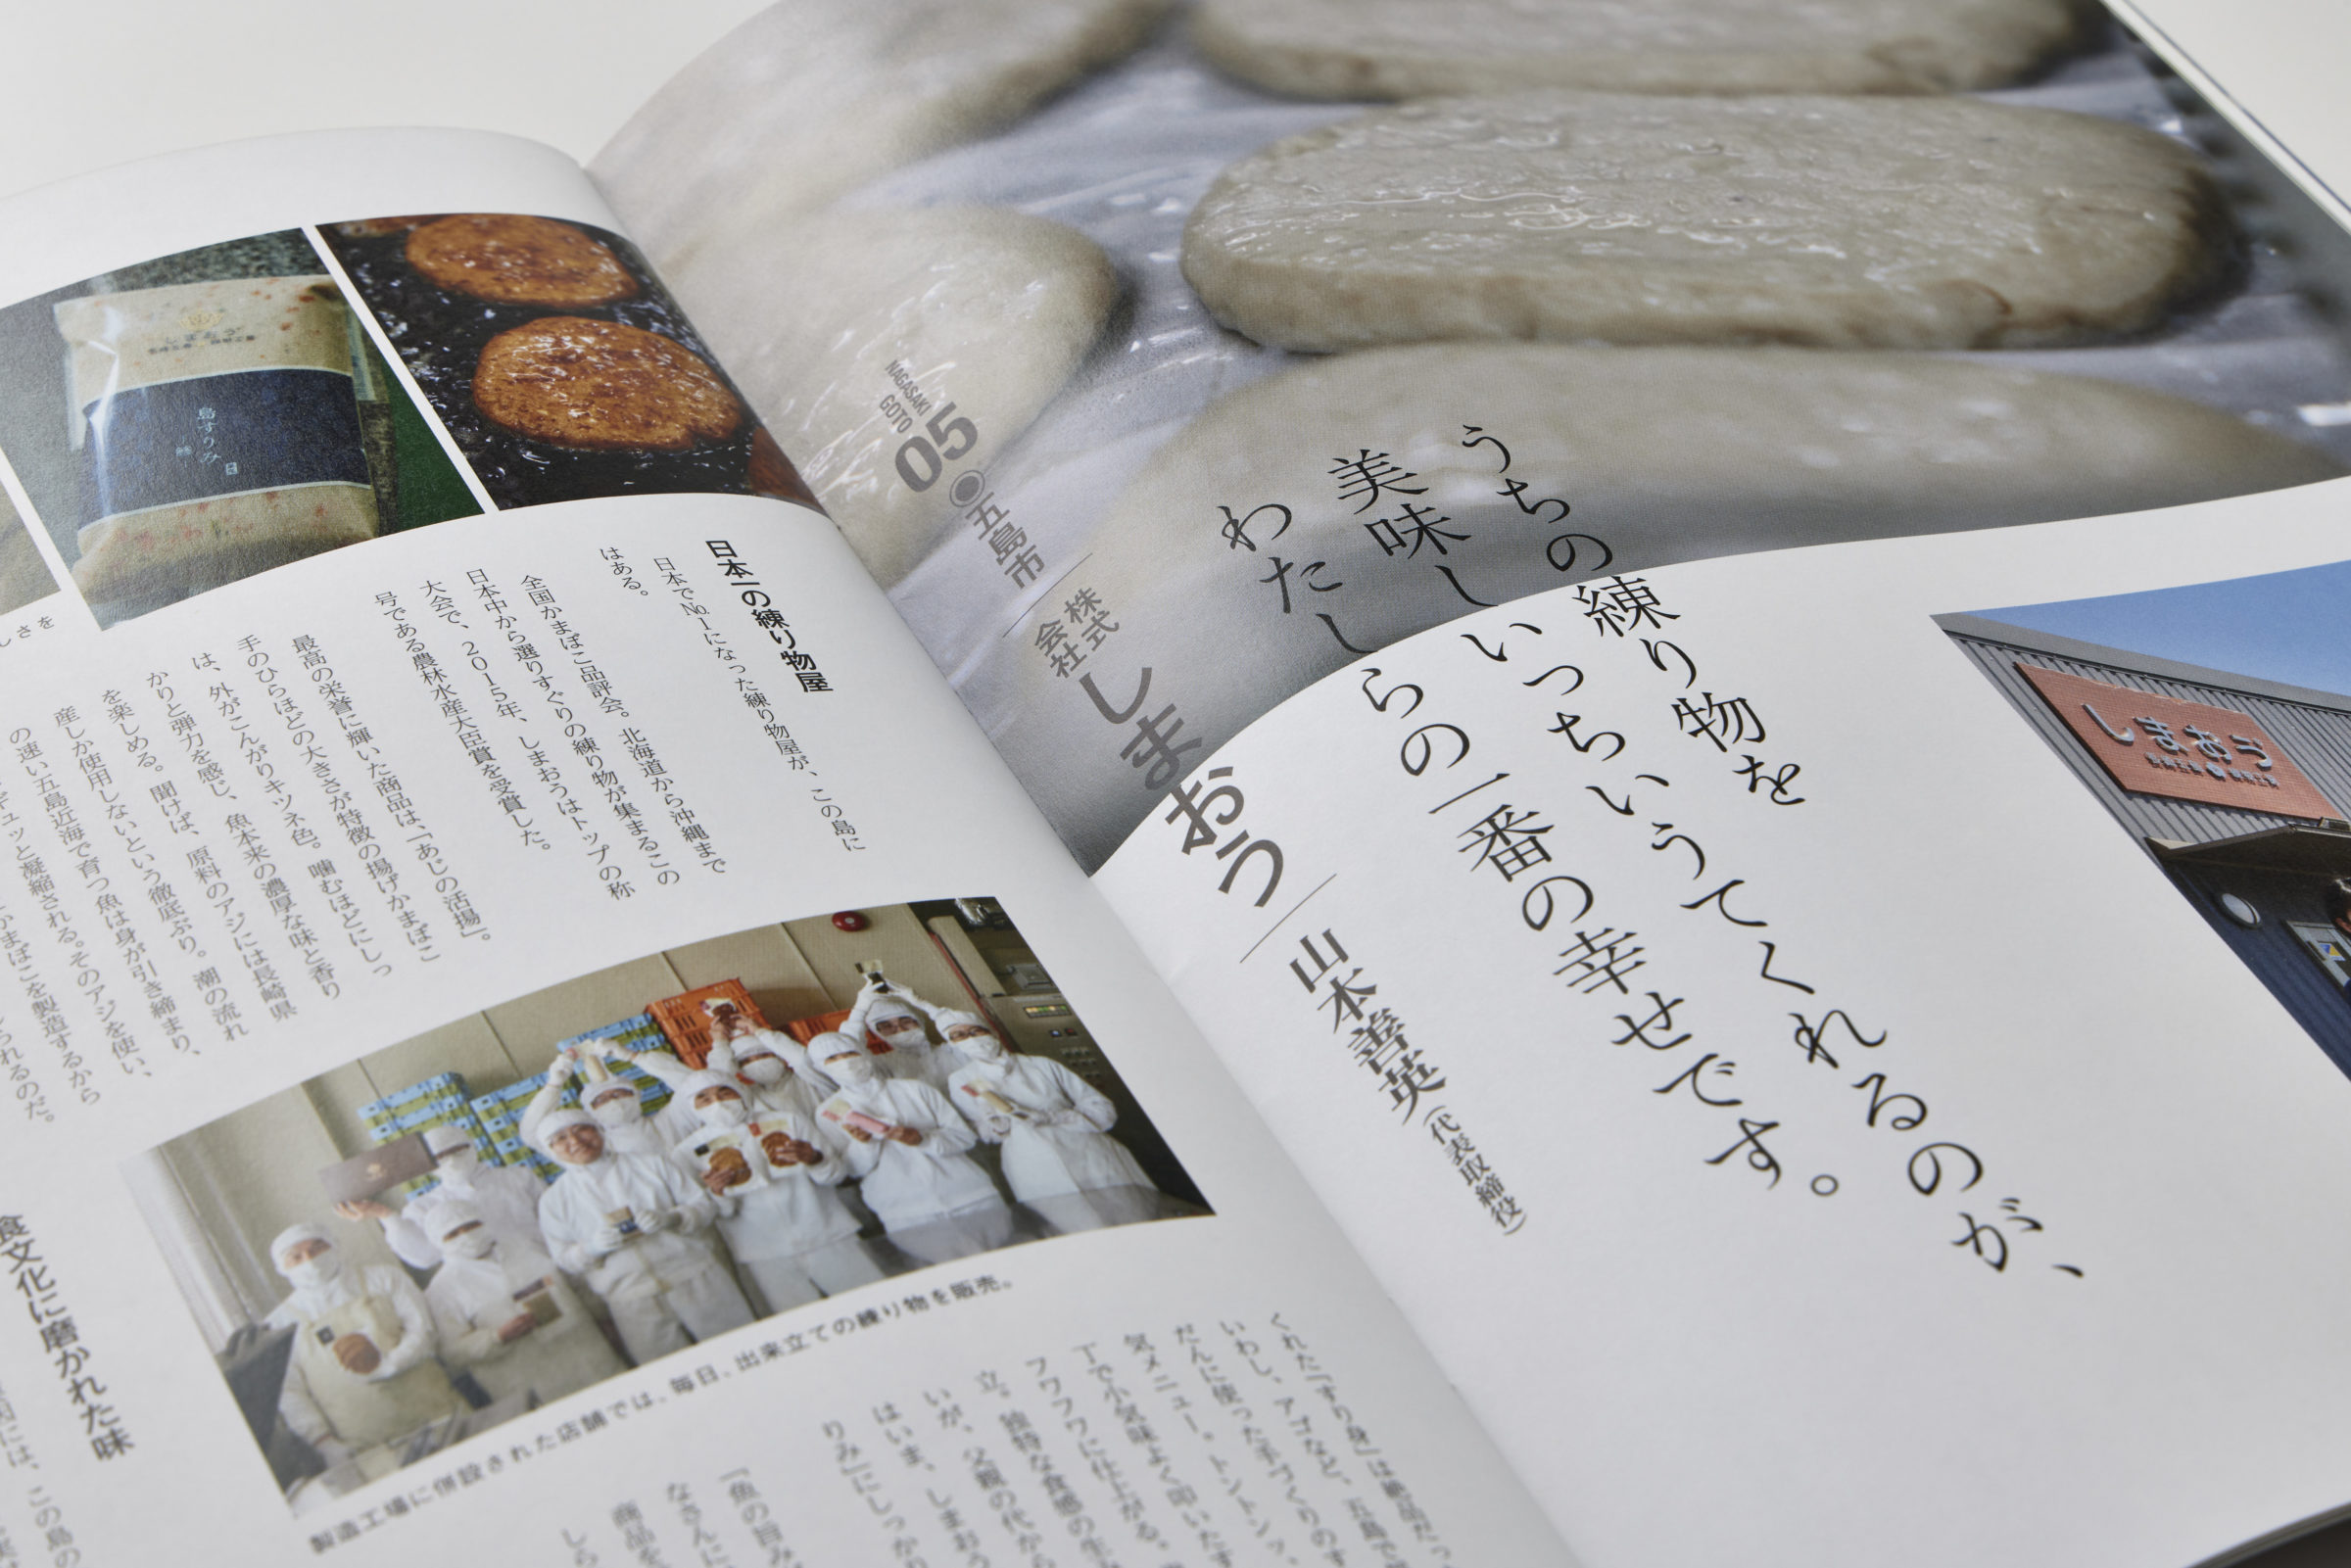 うちの練り物を
美味しいっちいうてくれるのが、
わたしらの一番の幸せです。
NAGASAKI
GOTO
05
五島市
株式
会社
しまおう
山本善英(代表取締役)
しまおう
しまおう
島すりみ
日本一の練り物屋
日本でNo.1になった練り物屋が、この島に
はある。
全国かまぼこ品評会。北海道から沖縄まで
日本中から選りすぐりの練り物が集まるこの
大会で、2015年、しまおうはトップの称
号である農林水産大臣賞を受賞した。
最高の栄誉に輝いた商品は、「あじの活揚」。
手のひらほどの大きさが特徴の揚げかまぼこ
は、外がこんがりキツネ色。噛むほどにしっ
かりと弾力を感じ、魚本来の濃厚な味と香り
を楽しめる。聞けば、原料のアジには長崎県
産しか使用しないという徹底ぶり。潮の流れ
の速い五島近海で育つ魚は身が引き締まり、
ギュッと凝縮される。そのアジを使い、
かまぼこを製造するから
られるのだ。
しさを
製造工場に併設された店舗では、毎日、出来立ての練り物を販売。
食文化に磨かれた味
には、この島の
くれた「すり身」は絶品だっ
いわし、アゴなど、五島で
だんに使った手づくりのす
気メニュー。トントントンッ、
丁で小気味よく叩いたす
フワフワに仕上がる。
立。独特な食感の生
いが、父親の代から
はいま、しまおう
りみ」にしっかり
「魚の旨み
なさんに
商品を
しら